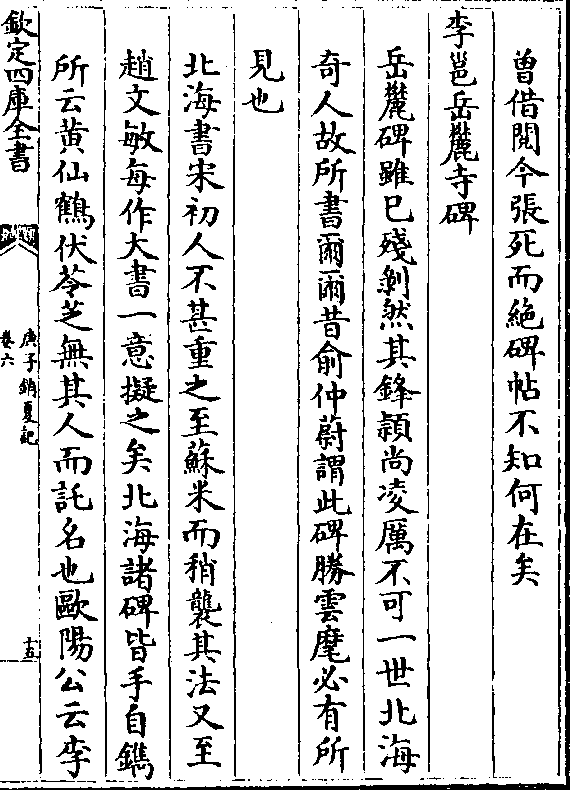 曾借閱今張死而絶碑帖不知何在矣
李邕岳麓寺碑
岳麓碑雖已殘剝然其鋒頴尚凌厲不可一世北海
奇人故所書爾爾昔俞仲蔚謂此碑勝雲麾必有所
見也
北海書宋初人不甚重之至蘇米而稍襲其法又至
趙文敏每作大書一意擬之矣北海諸碑皆手自鐫
所云黄仙鶴伏苓芝無其人而託名也歐陽公云李
欽定四庫全書
庚子銷夏記
卷六
十五